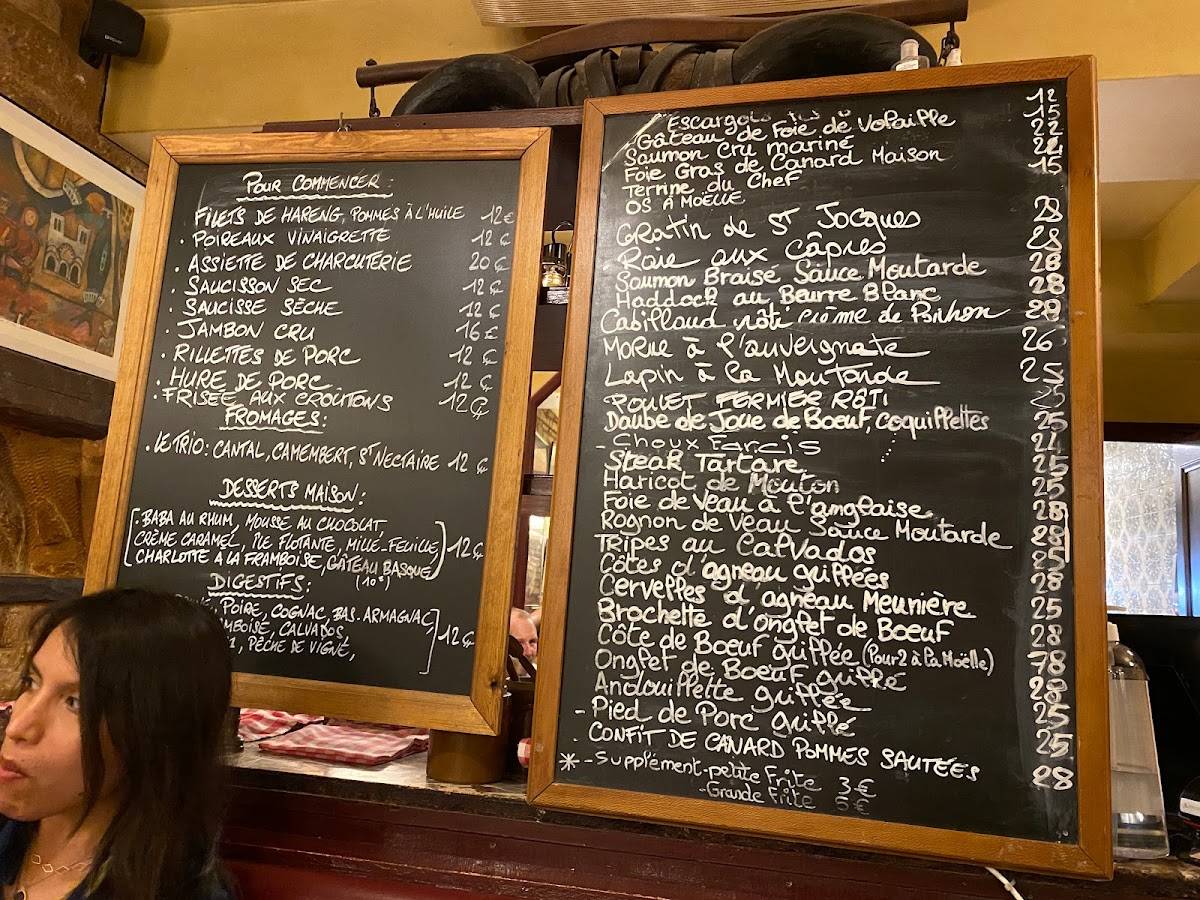 POUR COMMENCER :
FILETS DE HARENG, POMMES À L'HUILE 12€
. POIREAUX VINAIGRETTE 12€
. ASSIETTE DE CHARCUTERIE 20€
. SAUCISSON SEC 12€
. SAUCISSE SÈCHE 12€
. JAMBON CRU 16€
. RILLETTES DE PORC 12€
. HURE DE PORC 12€
. FRISÉE AUX CROÛTONS 12€
FROMAGES :
. LE TRIO : CANTAL, CAMEMBERT, ST NECTAIRE 12€
DESSERTS MAISON :
. BABA AU RHUM, MOUSSE AU CHOCOLAT,
CRÈME CARAMEL, ÎLE FLOTANTE, MILLE-FEUILLE, 12€
CHARLOTTE A LA FRAMBOISE, GÂTEAU BASQUE
(10€)
DIGESTIFS :
POIRE, COGNAC, BAS. ARMAGNAC,
CALVADOS, 12€
PÊCHE DE VIGNE,
Escargots 12
Gâteau de Foie de Volaille 15
Saumon Cru mariné 22
Foie Gras de Canard Maison
Terrine du Chef 15
OS À MOËLLE
Gratin de St Jacques 28
Raie aux Câpres 28
Saumon Braisé Sauce Moutarde 28
Haddock au Beurre Blanc 28
Cabillaud rôti crème de 28
MORUE à l'auvergnate 26
Lapin à la Moutarde 25
POULET FERMIER RÔTI
Daube de Joue de Boeuf, coquillettes 25
- Choux Farcis
Steak Tartare 25
Haricot de Mouton 25
Foie de Veau à l'anglaise
Rognon de Veau Sauce Moutarde 28
Tripes au Calvados 25
Côtes d'agneau grillées 28
Cervelles d'agneau Meunière 25
Brochette d'onglet de Boeuf 28
Côte de Boeuf grillée (Pour 2 à la Moëlle) 78
Onglet de Boeuf grillé 28
Andouillette grillée 25
- Pied de Porc grillé 25
- CONFIT DE CANARD POMMES SAUTÉES 28
* - Supplément - petite Frite 3€
- Grande Frite 6€